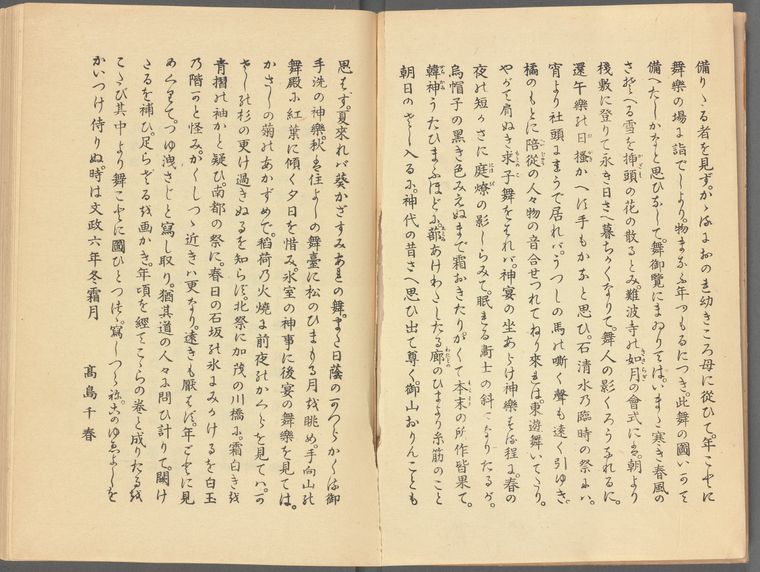 備りゝる者を見ず。かゝるにおのれ幼きころ母に從ひて。年ごとに
舞樂の場に詣でしより。物まなぶ年つもるにつき。此舞の圖いかで
備へたしかなと思ひおこして。舞御覽にまゐりては。いまだ寒き春風の
さそへる雪を挿頭の花の散るとみ。難波寺の如月の會式には。朝より
棧敷に登りて永き日さへ暮ちかくなりて。舞人の影くろうなれるに。
還午樂の日搔かへす手もがなと思ひ。石清水の臨時の祭には。
宵より社頭にまうで居れば。うつしの馬の嘶く聲も遠く引ゆき。
橘のもとに陪從の人々物の音合せつれてねり來れば。東遊舞いでたり。
やがて肩ぬぎ求子舞をはれば。神宴の坐あらけ神樂はずる程に。春の
夜の短かさに庭燎の影しらみて。眠れる衞士の斜になりたるが。
烏帽子の黒き色みえぬまで霜おきたり。かくて本末の所作皆果て。
韓神うたひまふほどに。蔀あけわたしたる廊のひまより糸筋のごと
朝日のさし入るに。神代の昔さへ思ひ出て尊く。御山おりんことも
思はず。夏來れば葵かざすみあれの舞。また日蔭のかつらかくる御
手洗の神樂。秋は住よしの舞臺に松のひまもる月を眺め。手向山の
舞殿に紅葉に傾く夕日を惜み。氷室の神事に後宴の舞樂を見ては。
かざしの菊のあかずめで。稻荷の火燒に前夜のかぐらを見ては。か
ざしの杉の更け過ぎぬるを知らず。北祭に加茂の川橋に。霜白きを
青摺の袖かと疑ひ。南都の祭に。春日の石坂の氷にみがけるを白玉
の階かと怪み。かくしつゝ近きは更なり。遠きも厭はず。年ごとに見
めぐりて。つゆ洩さじと寫し取り。猶其道の人々に問ひ計りて。闕け
たるを補ひ。足らざるを畫かき。年頃を經てこゝらの卷と成りたるを
こたび其中より舞ごとに圖ひとつ寫しつゝ。このゆゑよしを
かいつけ侍りぬ。時は文政六年冬霜月
高島千春